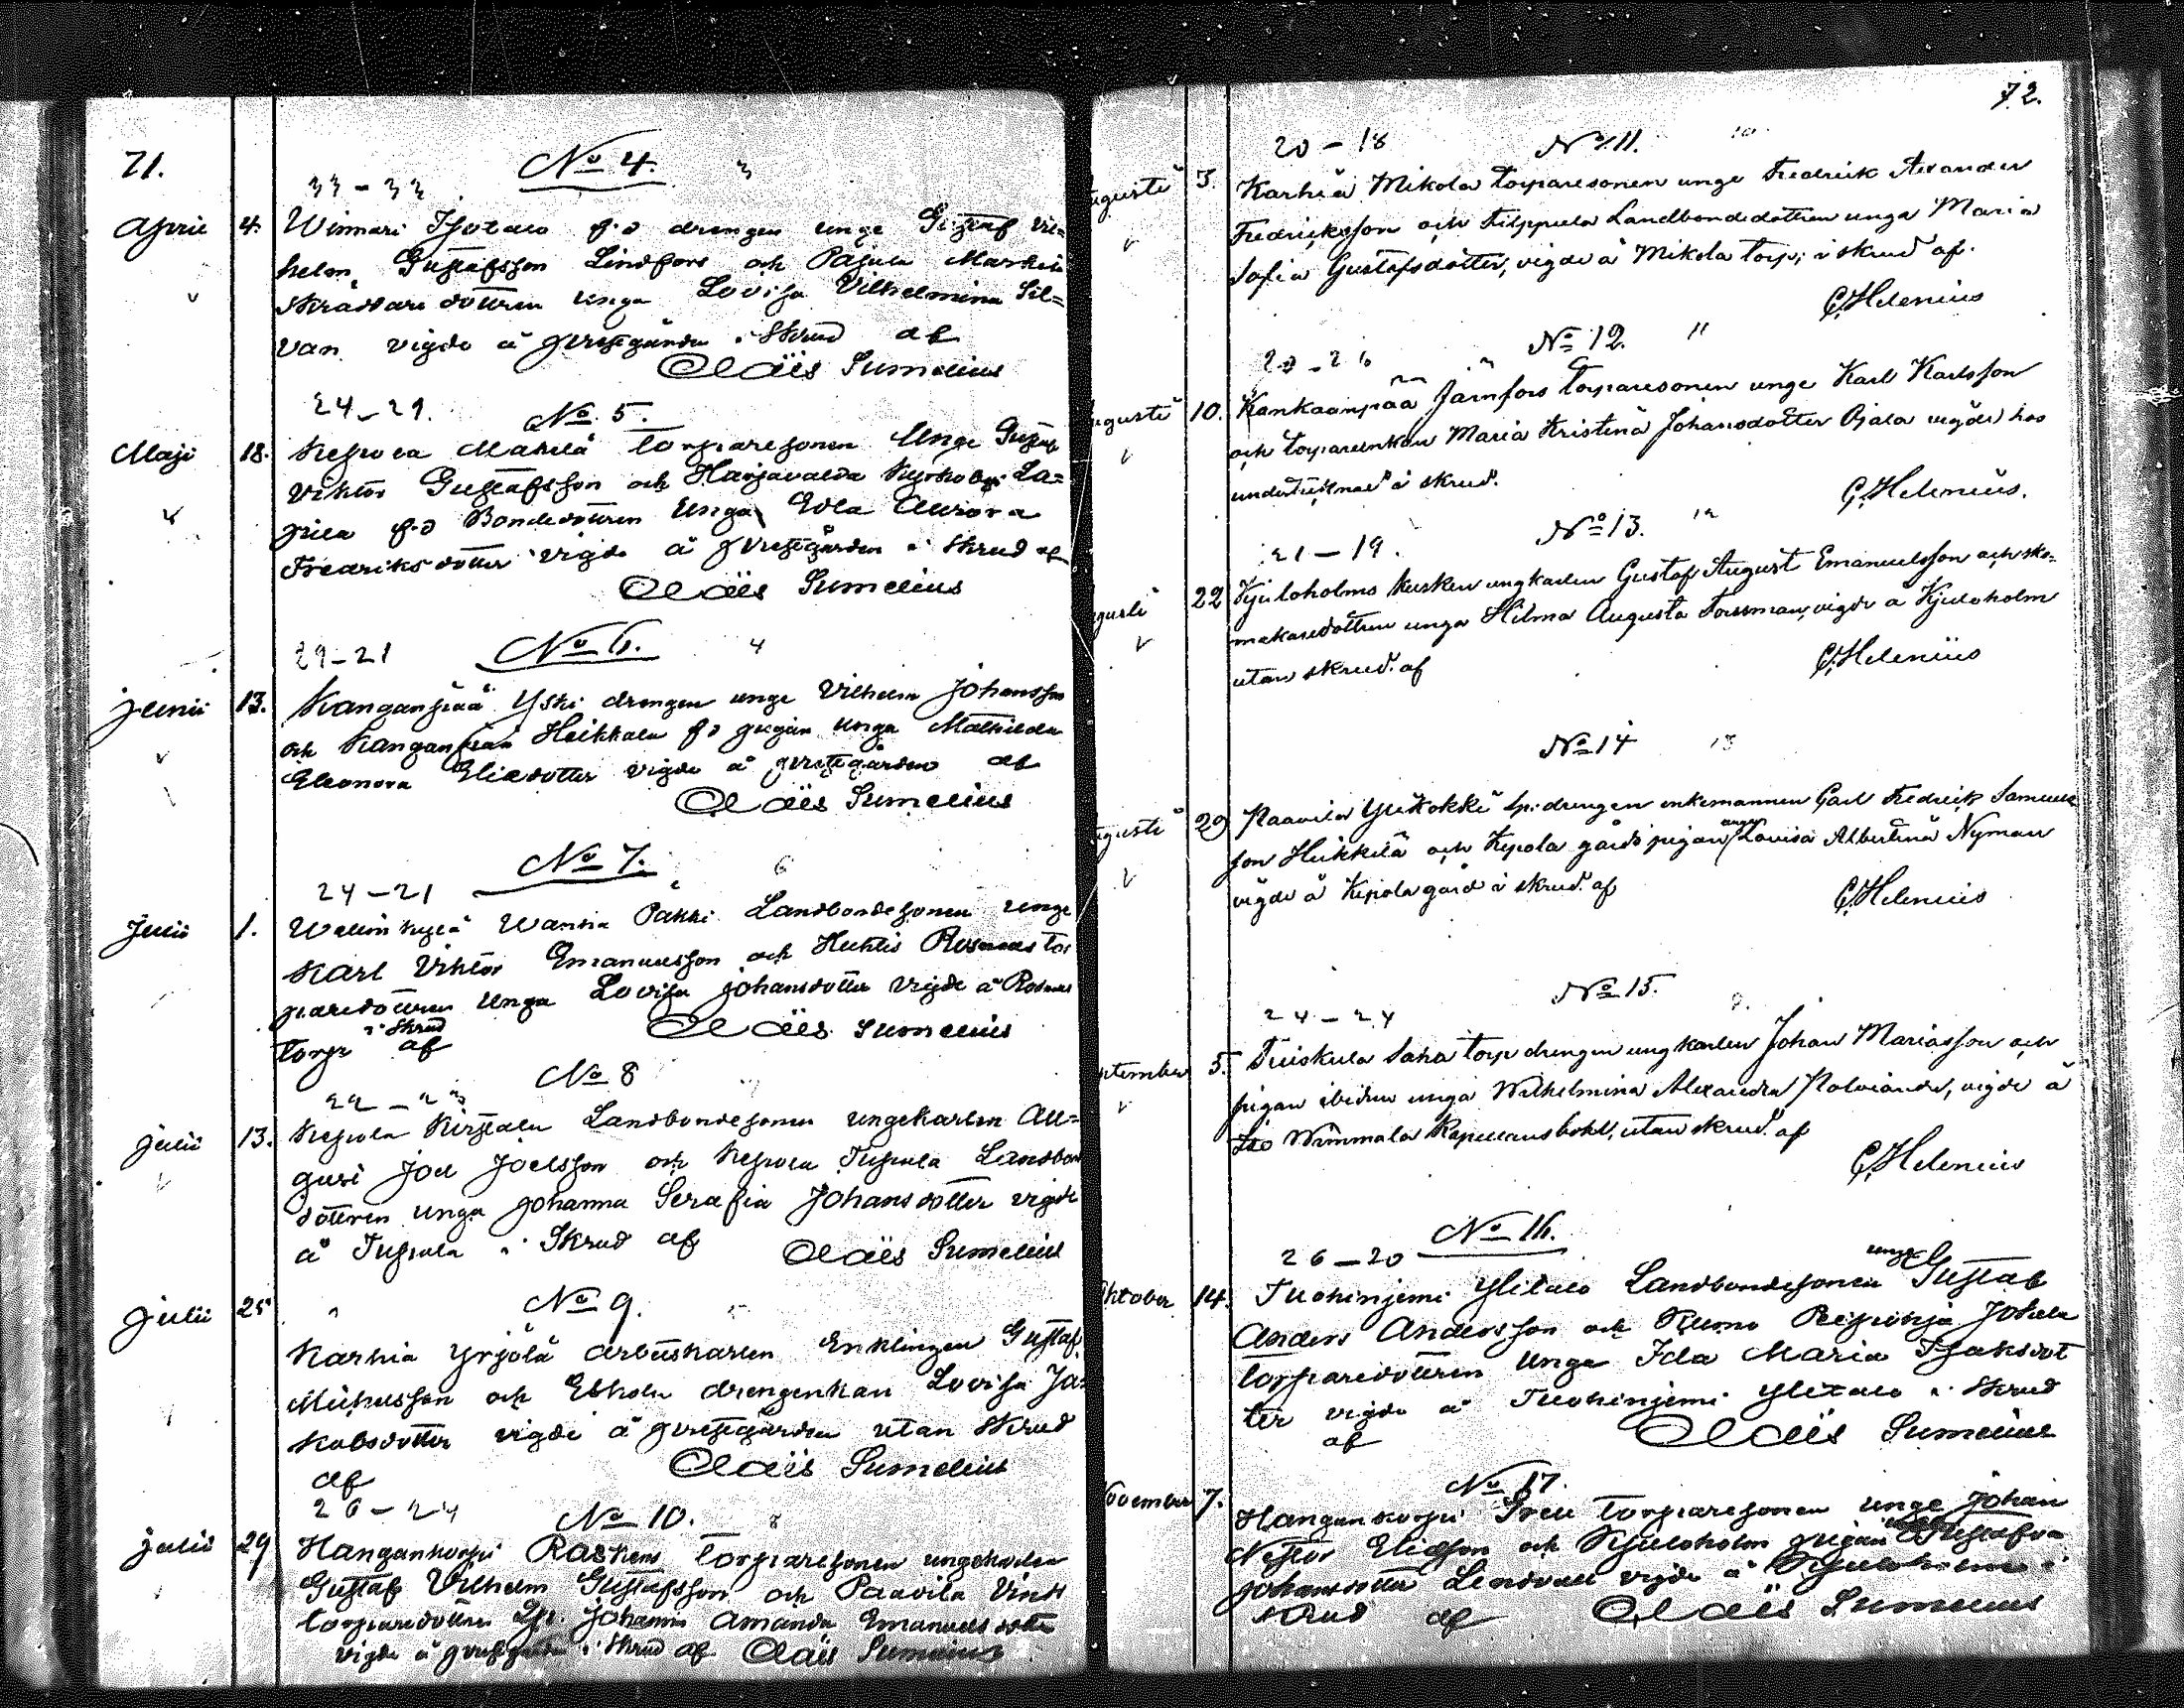 71.
No 4.
33 - 33
April 4. Winnari Isotalo f.d drengen unge Gustaf Vil=
helm Gustafsson Lindfors och Pajula Markula
skräddaredottren unga Lovisa Vilhelmina Sil=
van vigde å prestgården i Skrud af
Claës Sumelius
24-29. No 5.
Maji 18. Kepola Mäkelä torparesonen Unge Gustaf
Viktor Gustafsson och Harjavalda Kyrkoby La=
pila f.d Bondedottren Unga Edla Aurora
Fredriksdotter vigde å prestgården i Skrud af
Claës Sumelius
29-21 No 6. 4
Junii 13. Kanganpää Yski drengen unge Vilhelm Johansson
och Kanganpää Heikkala f.d pigan unga Mathilda
Eleonora Eliedotter vigde å prestgården af
Claës Sumelius
No 7. 6
24-21
Julii 1. Wallinkylä Wanha Päkki Landbondesonen unge
Karl Viktor Emanuelsson och Huhtis Rosnas tor
paredottren unga Lovisa Johansdotter vigde å Rosnas
torp i Skrud af
Claës Sumelius
No 8
22-23
Julii 13. Kepola Kirstala Landbondesonen ungekarlen Au=
gust Joel Joelsson och Kepola Tupala Landbon
dottren unga Johanna Serafia Johansdotter vigde
å Tupala i Skrud af Claës Sumelius
No 9.
Julii 25 Karhia Yrjölä arbetskarlen Enklingen Gustaf
Michelsson och drengenkan Lovisa Ja=
kobsdotter vigde å prestgården utan Skrud
af Claës Sumelius
26-24 No 10. 8
Julii 29 Hangankorpi Raskens torparesonen ungekarlen
Gustaf Vilhelm Gustafsson och Paavila Vinst
torparedottren Johanna Amanda Emanuelsdotter
vigde å prestgården i Skrud af Claës Sumelius
72.
20-18 No 11. 10
Augusti 5. Karhiä Mikola torparesonen unge Fredrik Alexander
Fredriksson och Filppula Landbondedottren unga Maria
Sofia Gustafsdotter, vigde å Mikola torp, i skrud af
G. Helenius
No 12. 11
20-26
Augusti 10. Kankaanpää Järnfors torparesonen unge Karl Karlsson
och torpareenkan Maria Kristina Johansdotter Ojala vigde hos
undertecknad i skrud.
G. Helenius.
No 13. 12
21-19.
Augusti 22 Kjuloholms kusken ungkarlen Gustaf August Emanuelsson och sko-
makaredottren unga Hilma Augusta Forssman, vigde å Kjuloholm
utan skrud af
G. Helenius
No 14 13
Augusti 29 Paavila Yli Kokki drengen enkemannen Carl Fredrik Samuels
son Heikkilä och Kepola gårds pigan unga Lovisa Albertina Nyman
vigde å Kepola gård i skrud af
G. Helenius
No 15.
24-24
September 5. Tuiskula Saha torp drengen ungkarlen Johan Mariasson och
pigan ibidem unga Wilhelmina Alexandra Palviander, vigde å
Wimmala Kapellansbohl, utan skrud af
G. Helenius
No 16.
26-20
Oktober 14. Tuohiniemi Ylitalo Landbondesonen unge Gustaf
Anders Andersson och Kumo Peipohja Johola
torparedottren unga Ida Maria Isaksdot
ter vigde å Tuohiniemi Ylitalo i Skrud
af Claës Sumelius
No 17.
November 7. Hangankorpi torparesonen unge Johan
Nestor Eliasson och Kjuloholm pigan Gustafva
Johansdotter Lindvall vigde å Kjuloholm i
skrud af Claës Sumelius